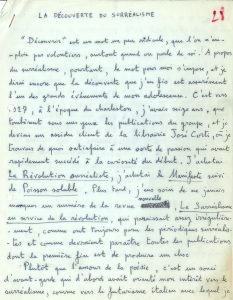 LA DÉCOUVERTE DU SURRÉALISME
"Découvrir" est un mot un peu ridicule, que l'on n'em-
-ploie pas volontiers, surtout quand on parle de soi. A propos
du surréalisme, pourtant, le mot pour moi s'impose, et je
dirai encore que la découverte que j'en fis est assurément
l'un des grands événements de mon adolescence. C'est vers
1927, à l'époque du charleston, j'avais seize ans, que
tombèrent sous mes yeux les publications du groupe, et je
devins un assidu client de la librairie José Corti, où je
trouvais de quoi satisfaire à une sorte de passion qui avait
rapidement succédé à la curiosité du début. J'achetai
La Révolution surréaliste, j'achetai le Manifeste suivi
de Poisson soluble. Plus tard, j'eus soin de ne jamais
manquer un numéro de la revue nouvelle, Le Surréalisme
au service de la révolution, qui paraissait assez irrégulière-
ment, comme ont toujours fait les périodiques surréalis-
-tes et comme devraient paraître toutes les publications
dont la première fin est de produire un choc.
Plutôt que l'amour de la poésie, c'est un souci
d'avant-garde qui d'abord avait orienté mon intérêt vers le
surréalisme, comme vers le futurisme italien avec lequel je